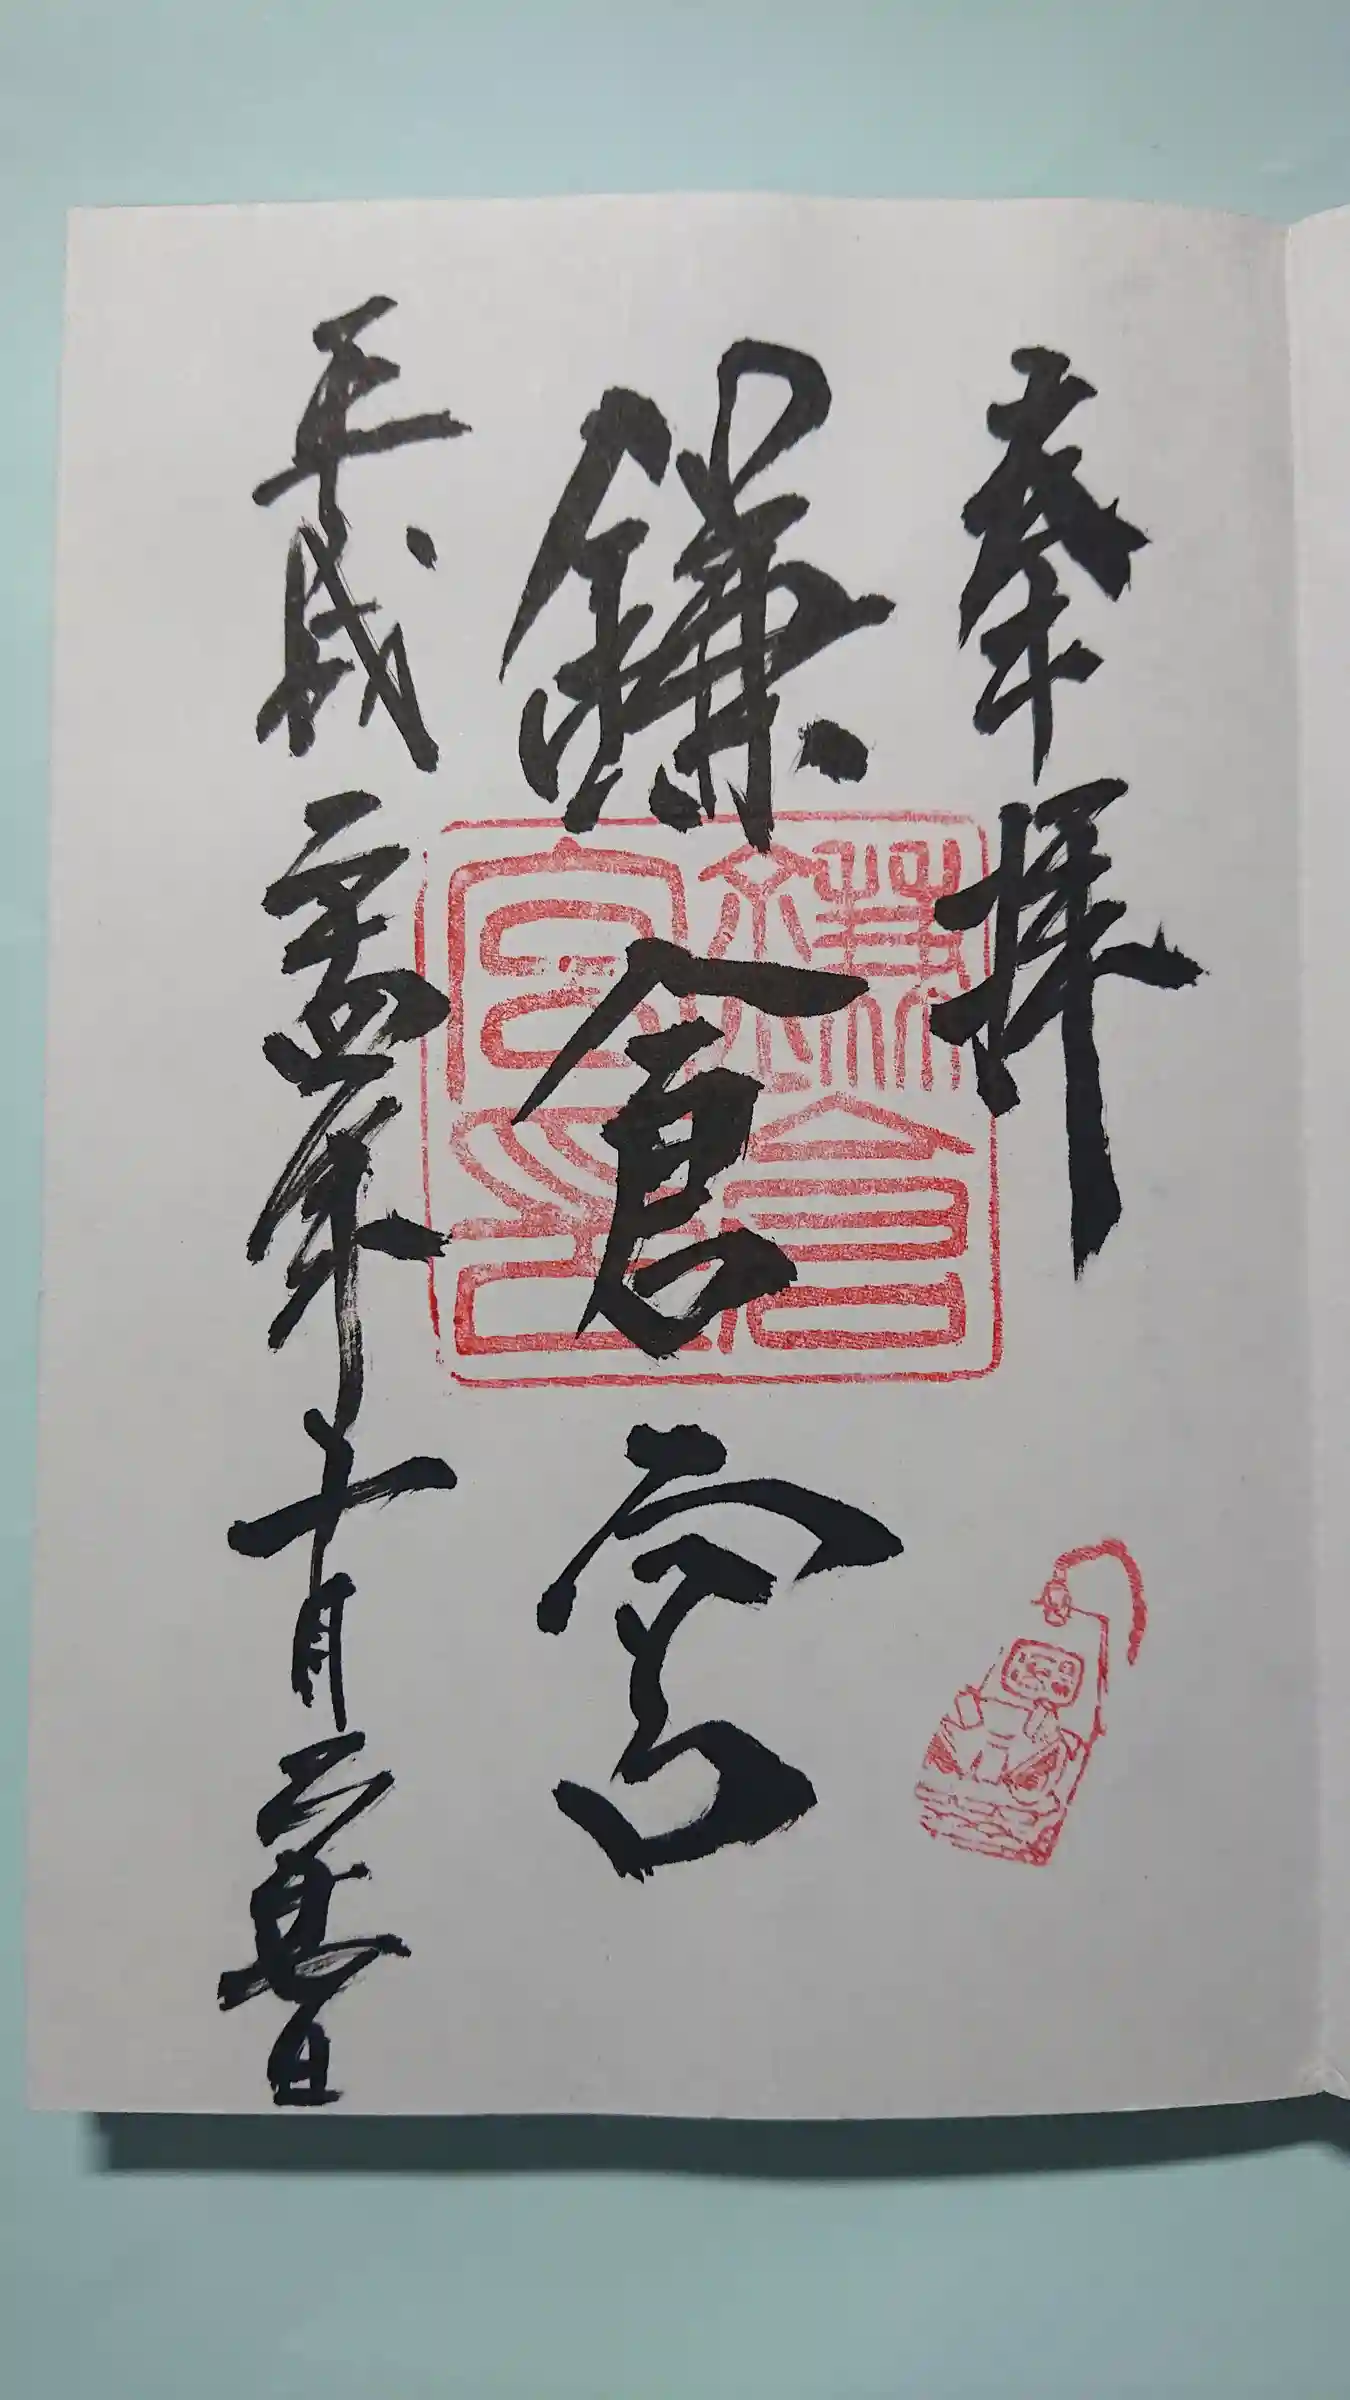 奉拝
鎌倉宮
鎌倉宮印
平成二十四年十月